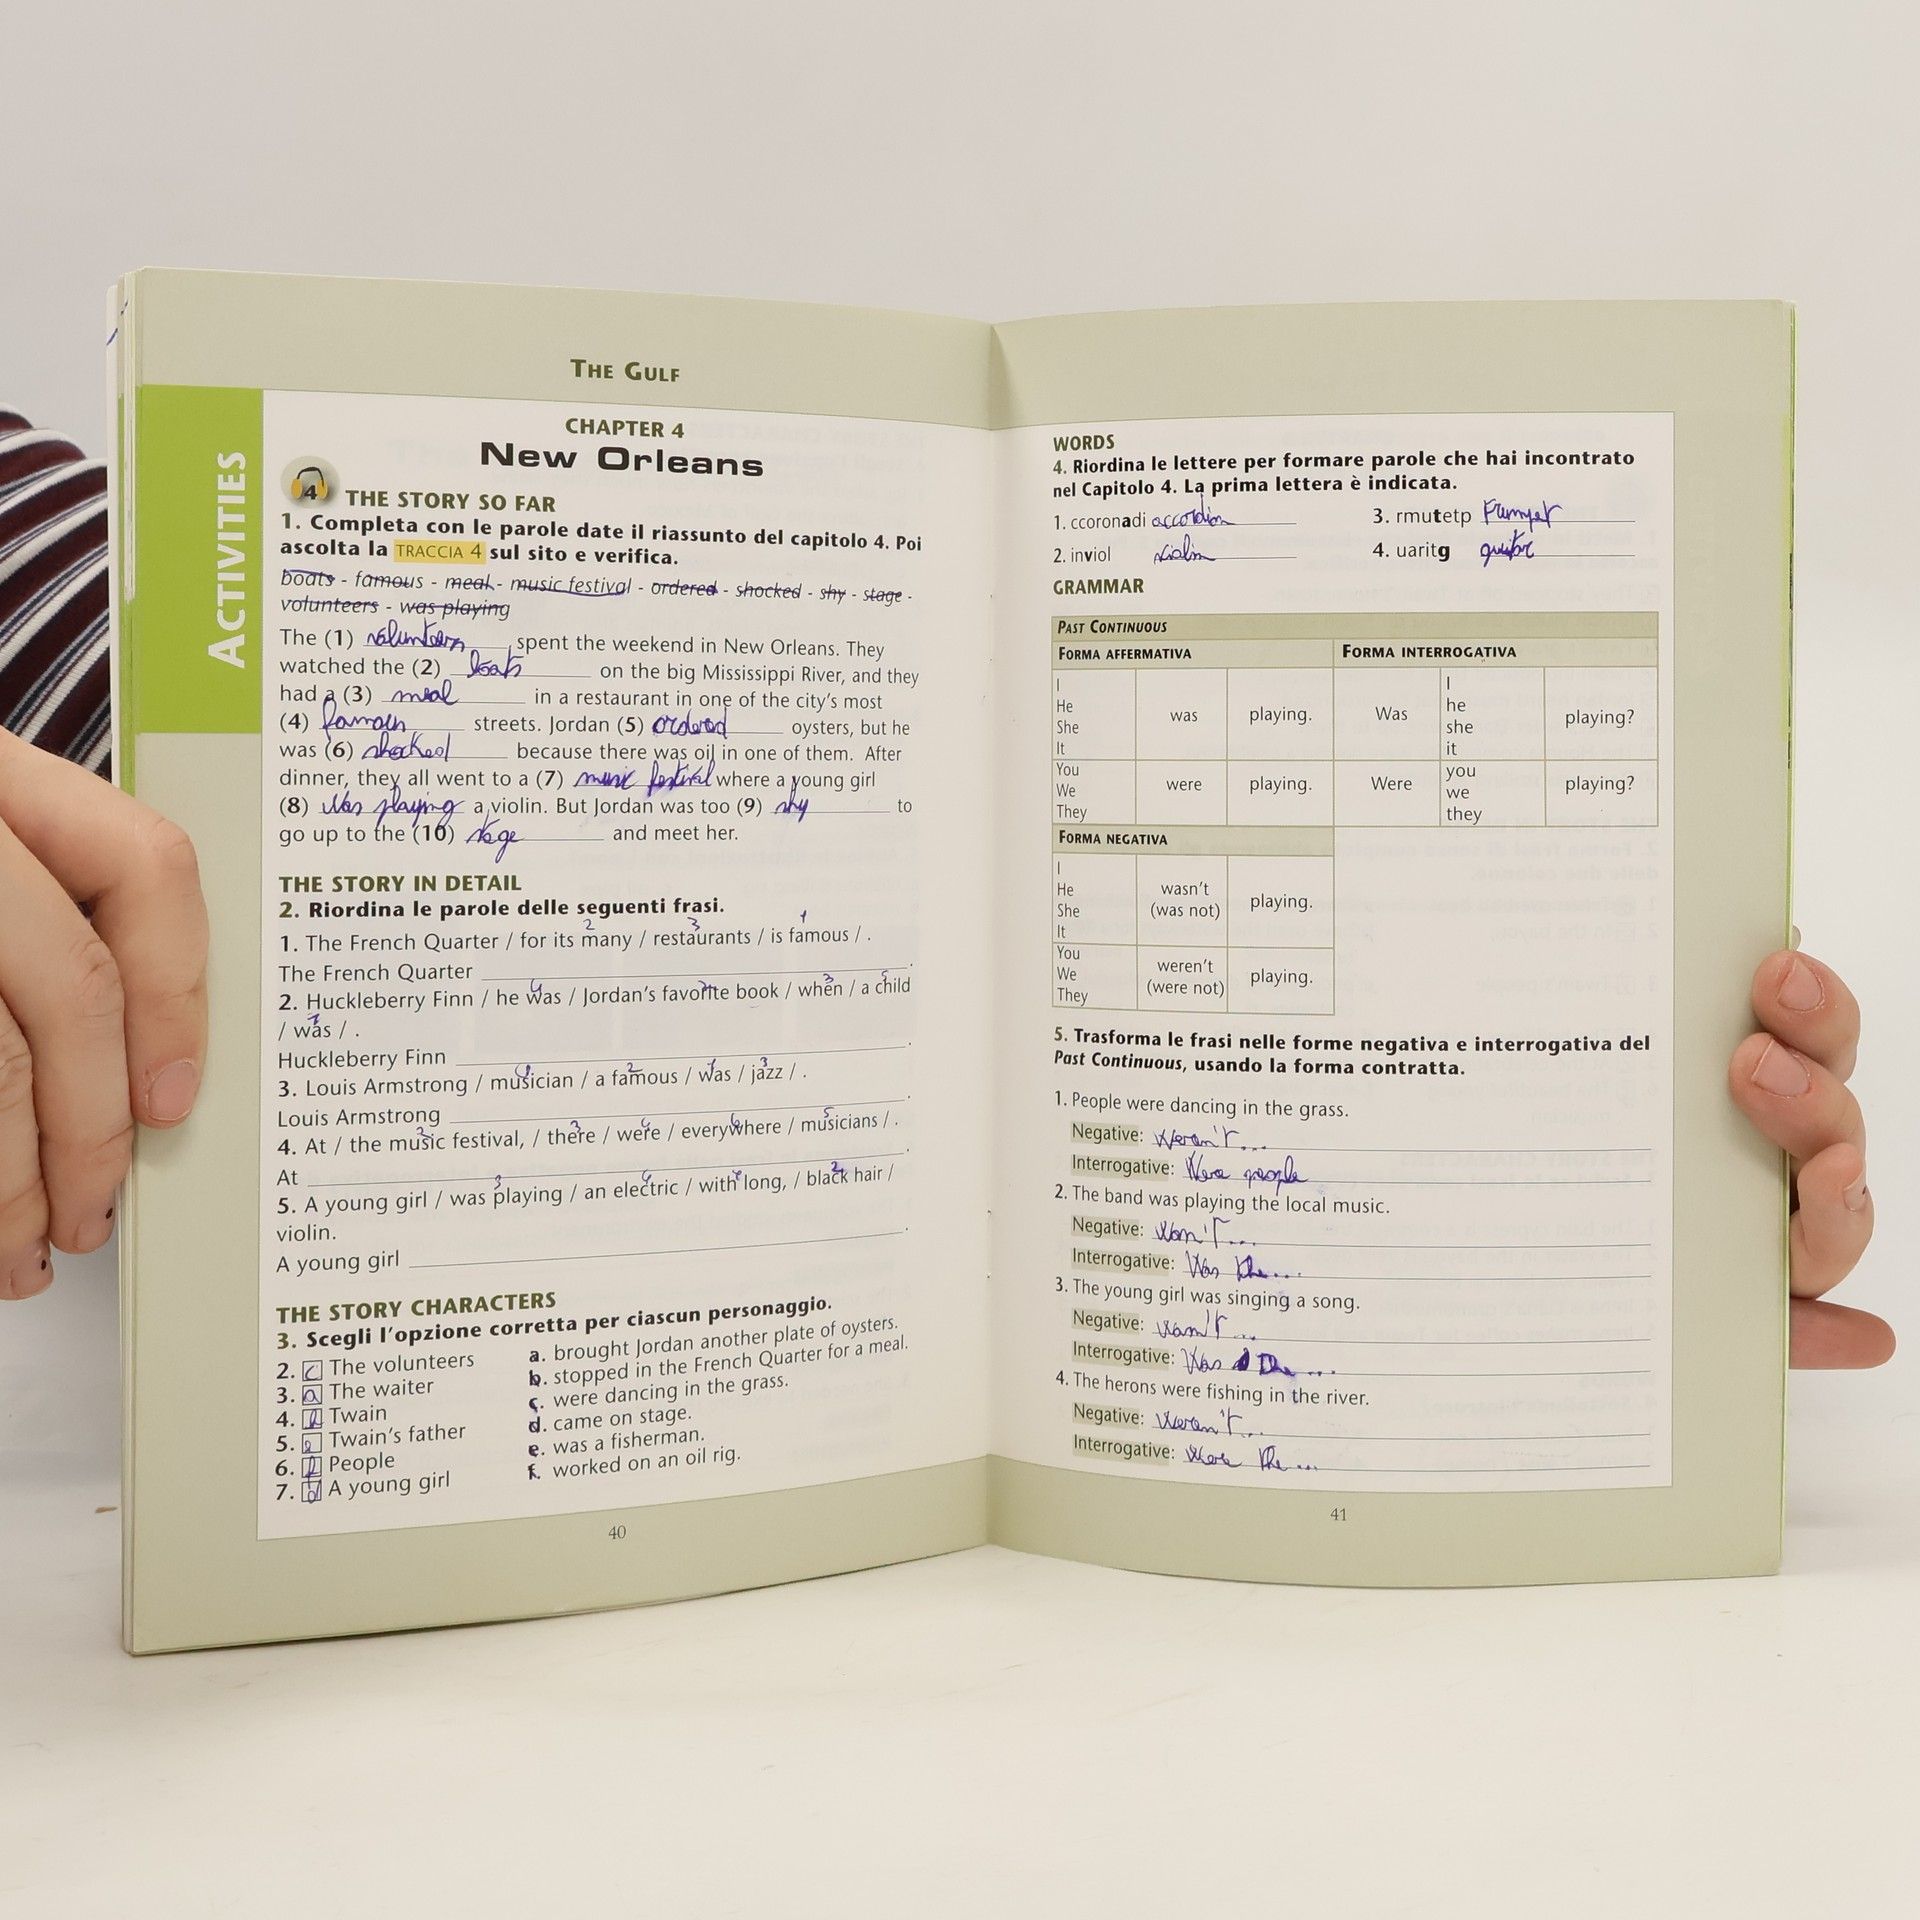 THE GULF
ACTIVITIES
CHAPTER 4
New Orleans
4 THE STORY SO FAR
1. Completa con le parole date il riassunto del capitolo 4. Poi
ascolta la TRACCIA 4 sul sito e verifica.
boats - famous - meal - music festival - ordered - shocked - shy - stage -
volunteers - was playing
The (1) volunteers spent the weekend in New Orleans. They
watched the (2) boats on the big Mississippi River, and they
had a (3) meal in a restaurant in one of the city's most
(4) famous streets. Jordan (5) ordered oysters, but he
was (6) shocked because there was oil in one of them. After
dinner, they all went to a (7) music festival where a young girl
(8) was playing a violin. But Jordan was too (9) shy to
go up to the (10) stage and meet her.
THE STORY IN DETAIL
2. Riordina le parole delle seguenti frasi.
2 3 1
1. The French Quarter / for its many / restaurants / is famous / .
The French Quarter .
2. Huckleberry Finn / he was / Jordan's favorite book / when / a child
/ was / .
Huckleberry Finn .
3. Louis Armstrong / musician / a famous / was / jazz / .
Louis Armstrong .
4. At / the music festival, / there / were / everywhere / musicians / .
At .
5. A young girl / was playing / an electric / with long, / black hair /
violin.
A young girl .
THE STORY CHARACTERS
3. Scegli l'opzione corretta per ciascun personaggio.
2. c The volunteers
3. a The waiter
4. Twain
5. Twain's father
6. People
7. A young girl
a. brought Jordan another plate of oysters.
b. stopped in the French Quarter for a meal.
c. were dancing in the grass.
d. came on stage.
e. was a fisherman.
f. worked on an oil rig.
40
WORDS
4. Riordina le lettere per formare parole che hai incontrato
nel Capitolo 4. La prima lettera è indicata.
1. ccoronadi accordion
2. inviol violin
3. rmutetp trumpet
4. uaritg guitar
GRAMMAR
PAST CONTINUOUS
FORMA AFFERMATIVA FORMA INTERROGATIVA
I
He
She
It
was playing.
Was
I
he
she
it
playing?
You
We
They
were playing.
Were
you
we
they
playing?
FORMA NEGATIVA
I
He
She
It
wasn't
(was not)
playing.
You
We
They
weren't
(were not)
playing.
5. Trasforma le frasi nelle forme negativa e interrogativa del
Past Continuous, usando la forma contratta.
1. People were dancing in the grass.
Negative: Weren't...
Interrogative: Were people
2. The band was playing the local music.
Negative: Wasn't...
Interrogative: Was the...
3. The young girl was singing a song.
Negative: Wasn't...
Interrogative: Was the...
4. The herons were fishing in the river.
Negative: Weren't...
Interrogative: Were the...
41